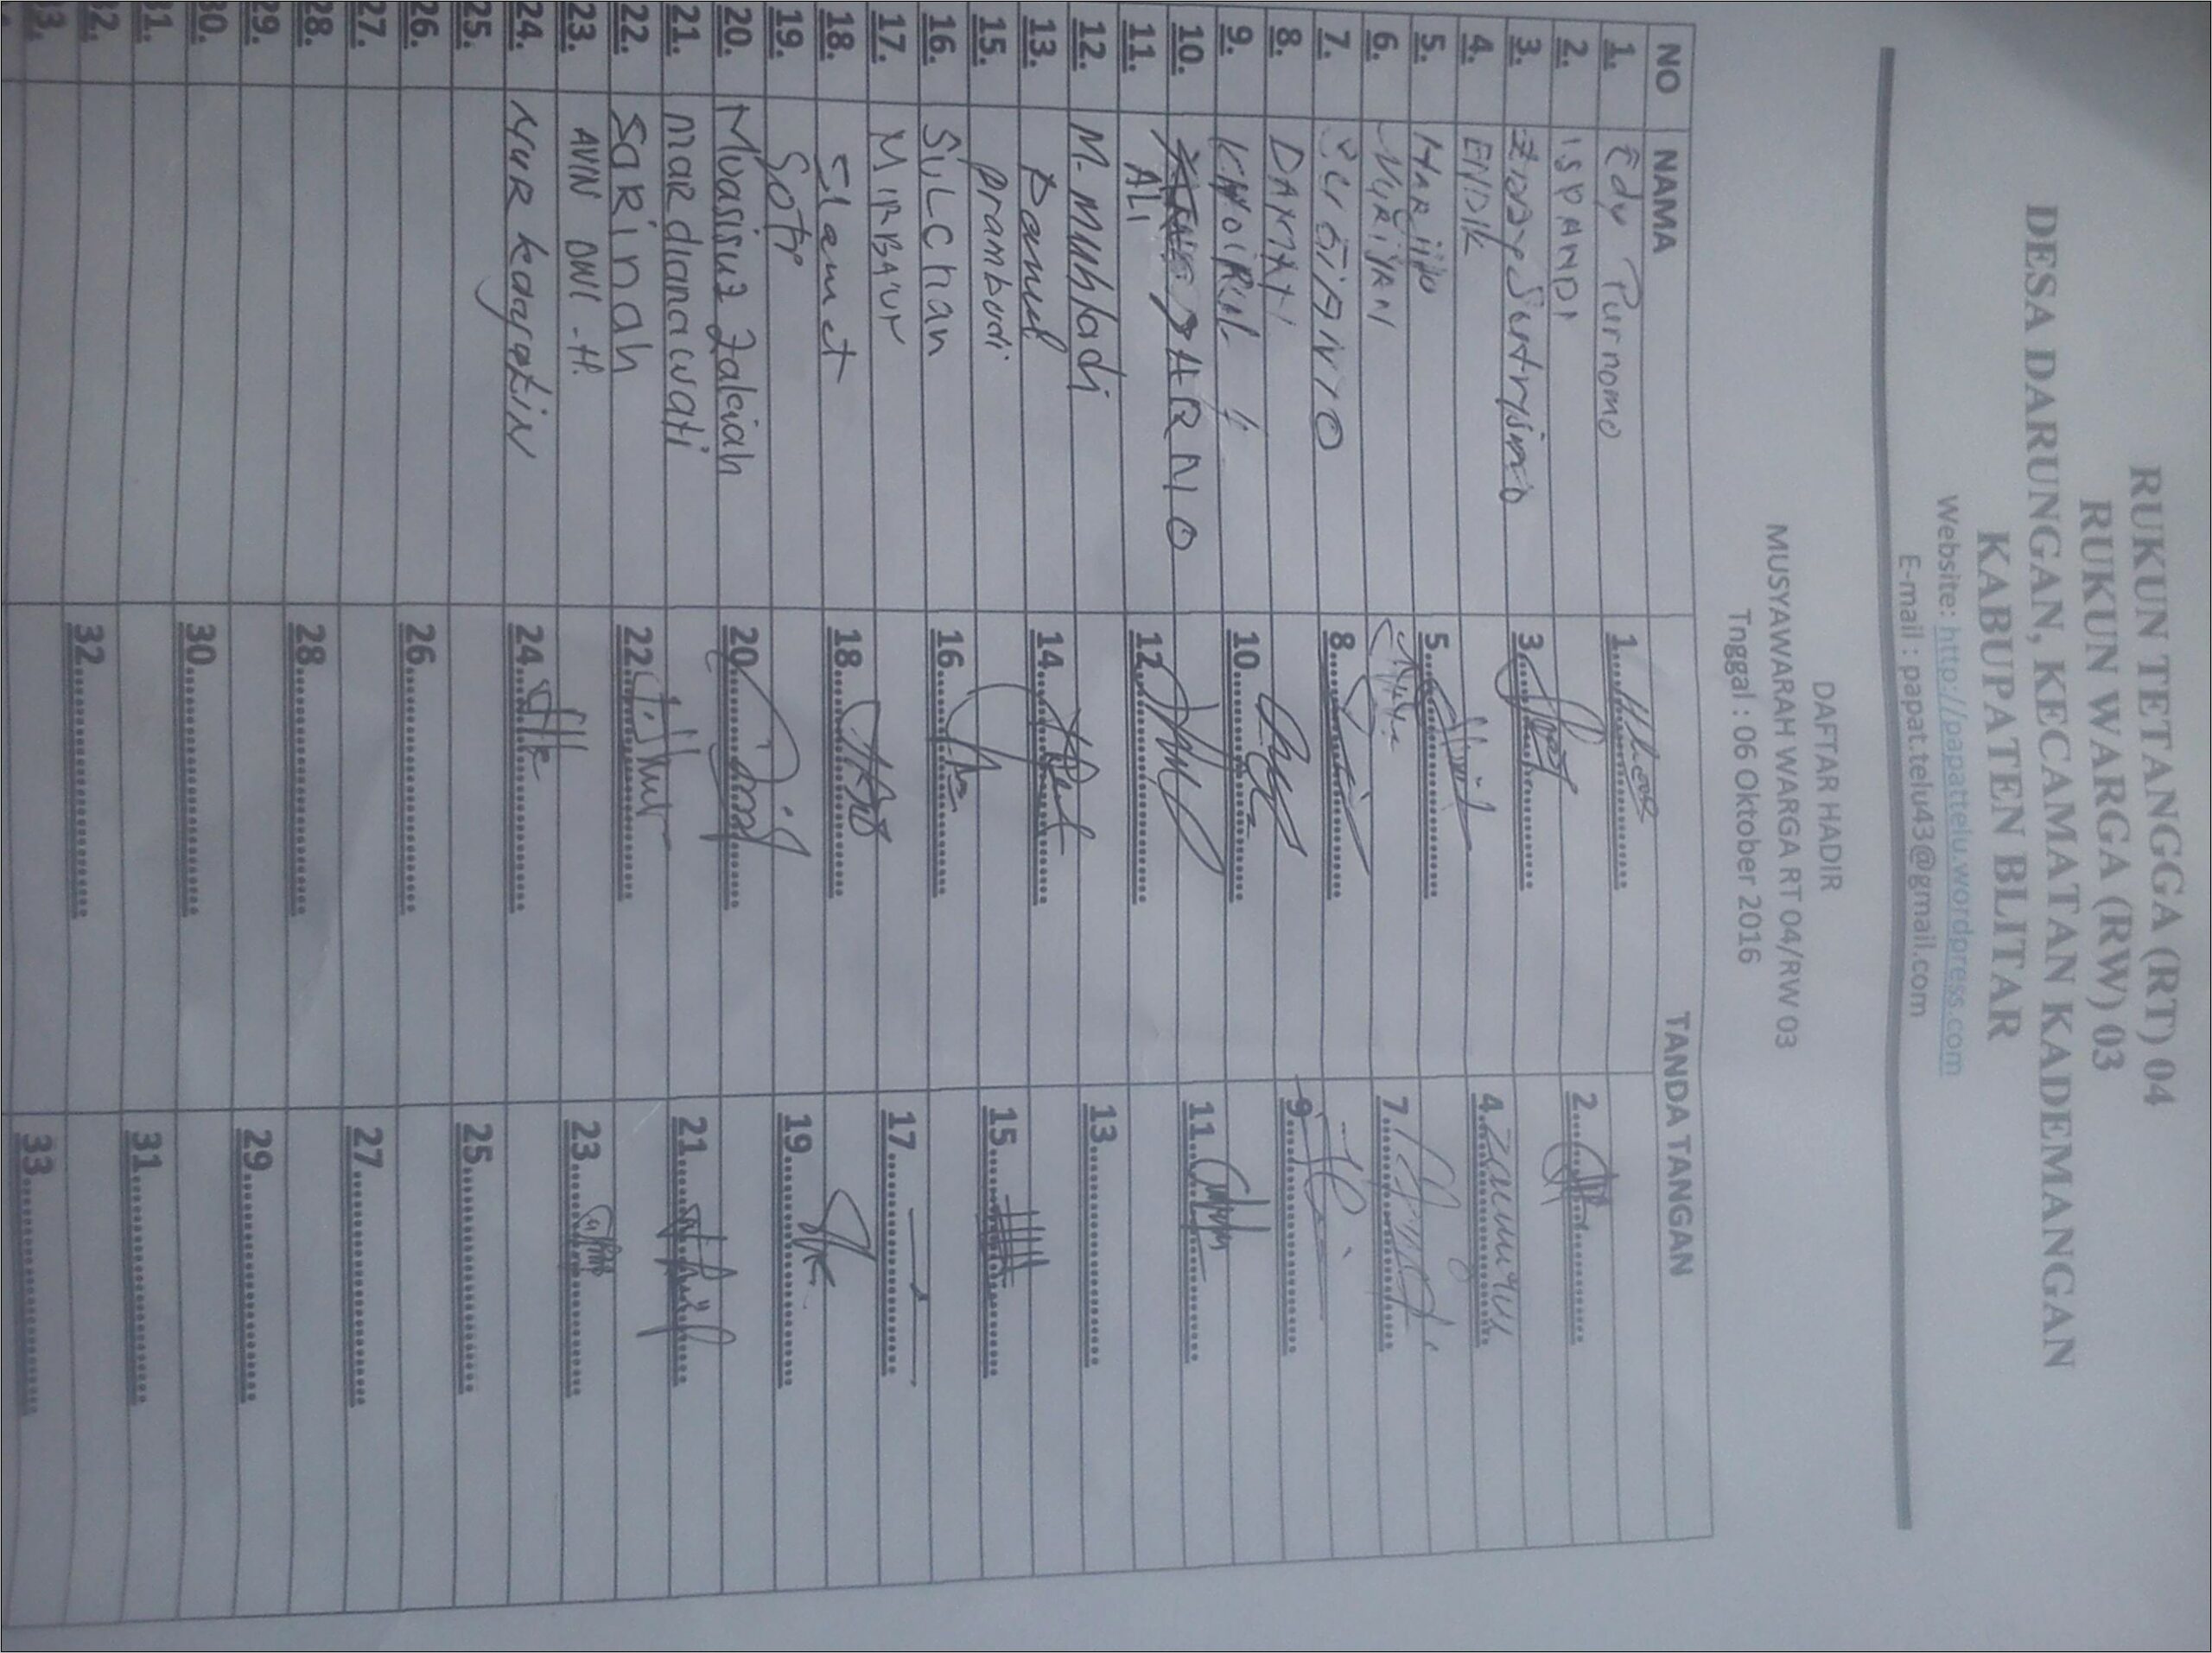 RUKUN TETANGGA (RT) 04
RUKUN WARGA (RW) 03
DESA DARUNGAN, KECAMATAN KADEMANGAN
KABUPATEN BLITAR
Website: http://papattelu.wordpress.com
E-mail : papat.telu43@gmail.com
DAFTAR HADIR
MUSYAWARAH WARGA RT 04/RW 03
Tnggal : 06 Oktober 2016
NO NAMA TANDA TANGAN
1. Edy Purnomo 1
2. ISPANDI 2
3. Sutrisno 3
4. ENDIK 4
5. HARjijo 5
6.
7. 7
8. DAMAI 8
9. KHOIRUL 9
10. 10
11. ALI 11
12. M. MUHhadi 12
13. Panut 13
14
15. prambudi 15
16. SiLChan 16
17. MIRBAUR 17
18. Slamet 18
19. 19
20. Muasisuz Zaleiah 20
21. mardianawati 21
22. SaRinah 22
23. AVIN DWI .H. 23
24. NUR kdayatiN 24
25. 25
26. 26
27. 27
28. 28
29. 29
30. 30
31. 31
32. 32
33. 33